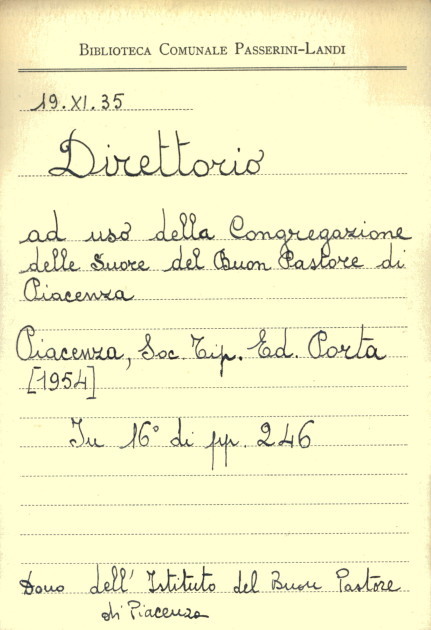 BIBLIOTECA COMUNALE PASSERINI-LANDI
19.XI.35
Direttorio
ad uso della Congregazione
delle Suore del Buon Pastore di
Piacenza
Piacenza, Soc. Tip. Ed. Porta
[1954]
In 16° di pp. 246
Dono dell' Istituto del Buon Pastore
di Piacenza